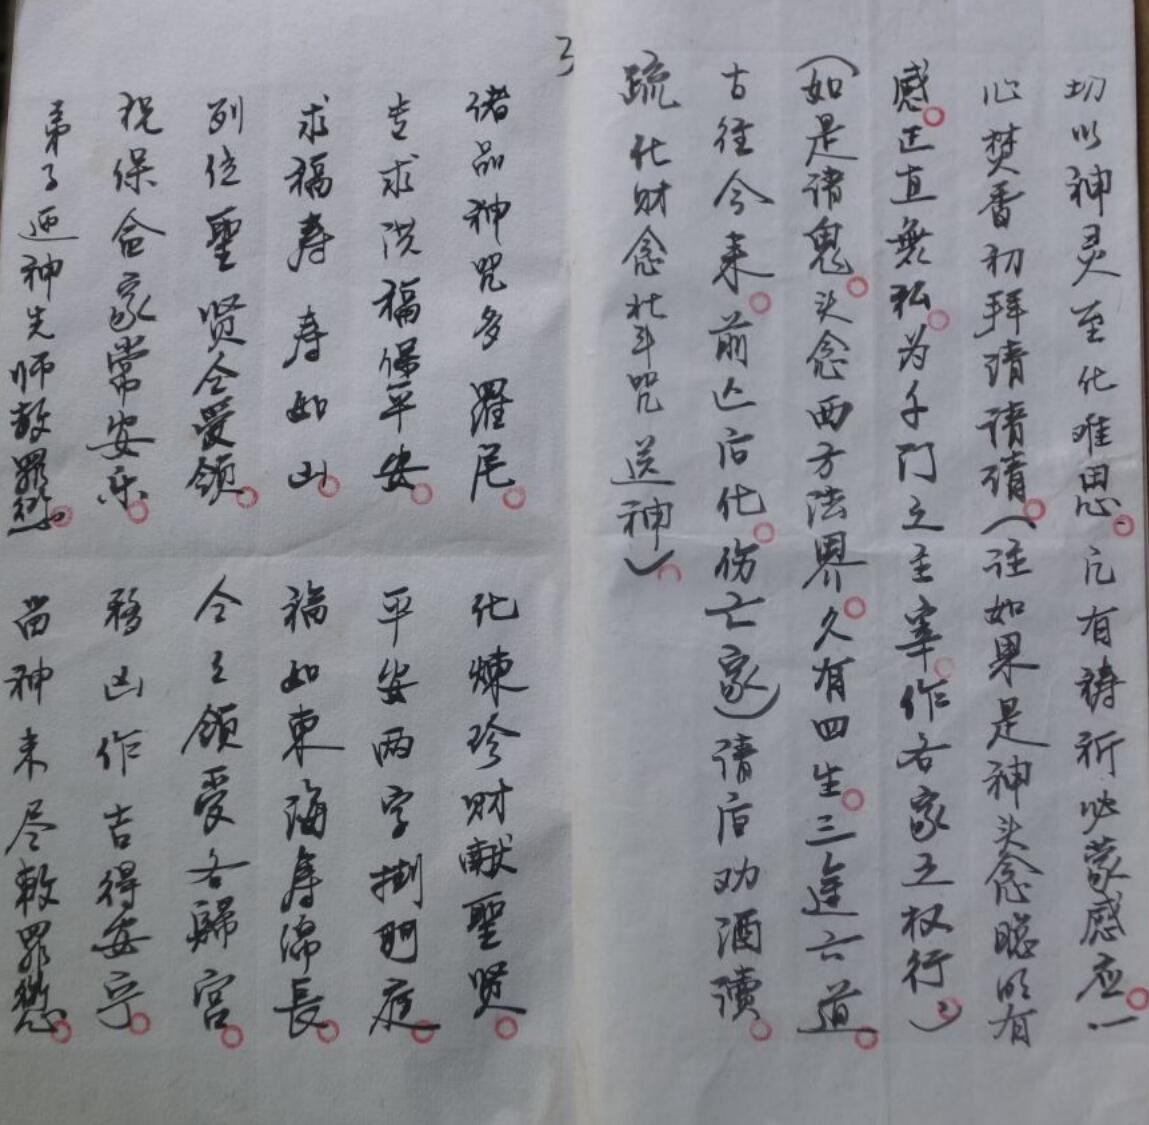 切以神灵至化难思。凡有祷祈必蒙感应。一
心焚香初拜请请请。(注如果是神头念聪明有
感。正直无私。为千门之主宰。作各家之权行。)
(如是诸鬼。头念西方法界。久有四生。三途六道。
古往今来。前亡后化。伤亡家)请后劝酒读。
疏化财念北斗咒送神)
了
诸品神咒多罗尼。化炼珍财献聖贤。
专求洪福保平安。平安两字掛門庭。
求福寿寿如山。福如東海寿绵長。
列位聖贤全受领。全之领受各歸宫。
祝保合家常安乐。移凶作吉得安宁。
弟子迎神先师赦罪愆。当神未尽赦罪愆。